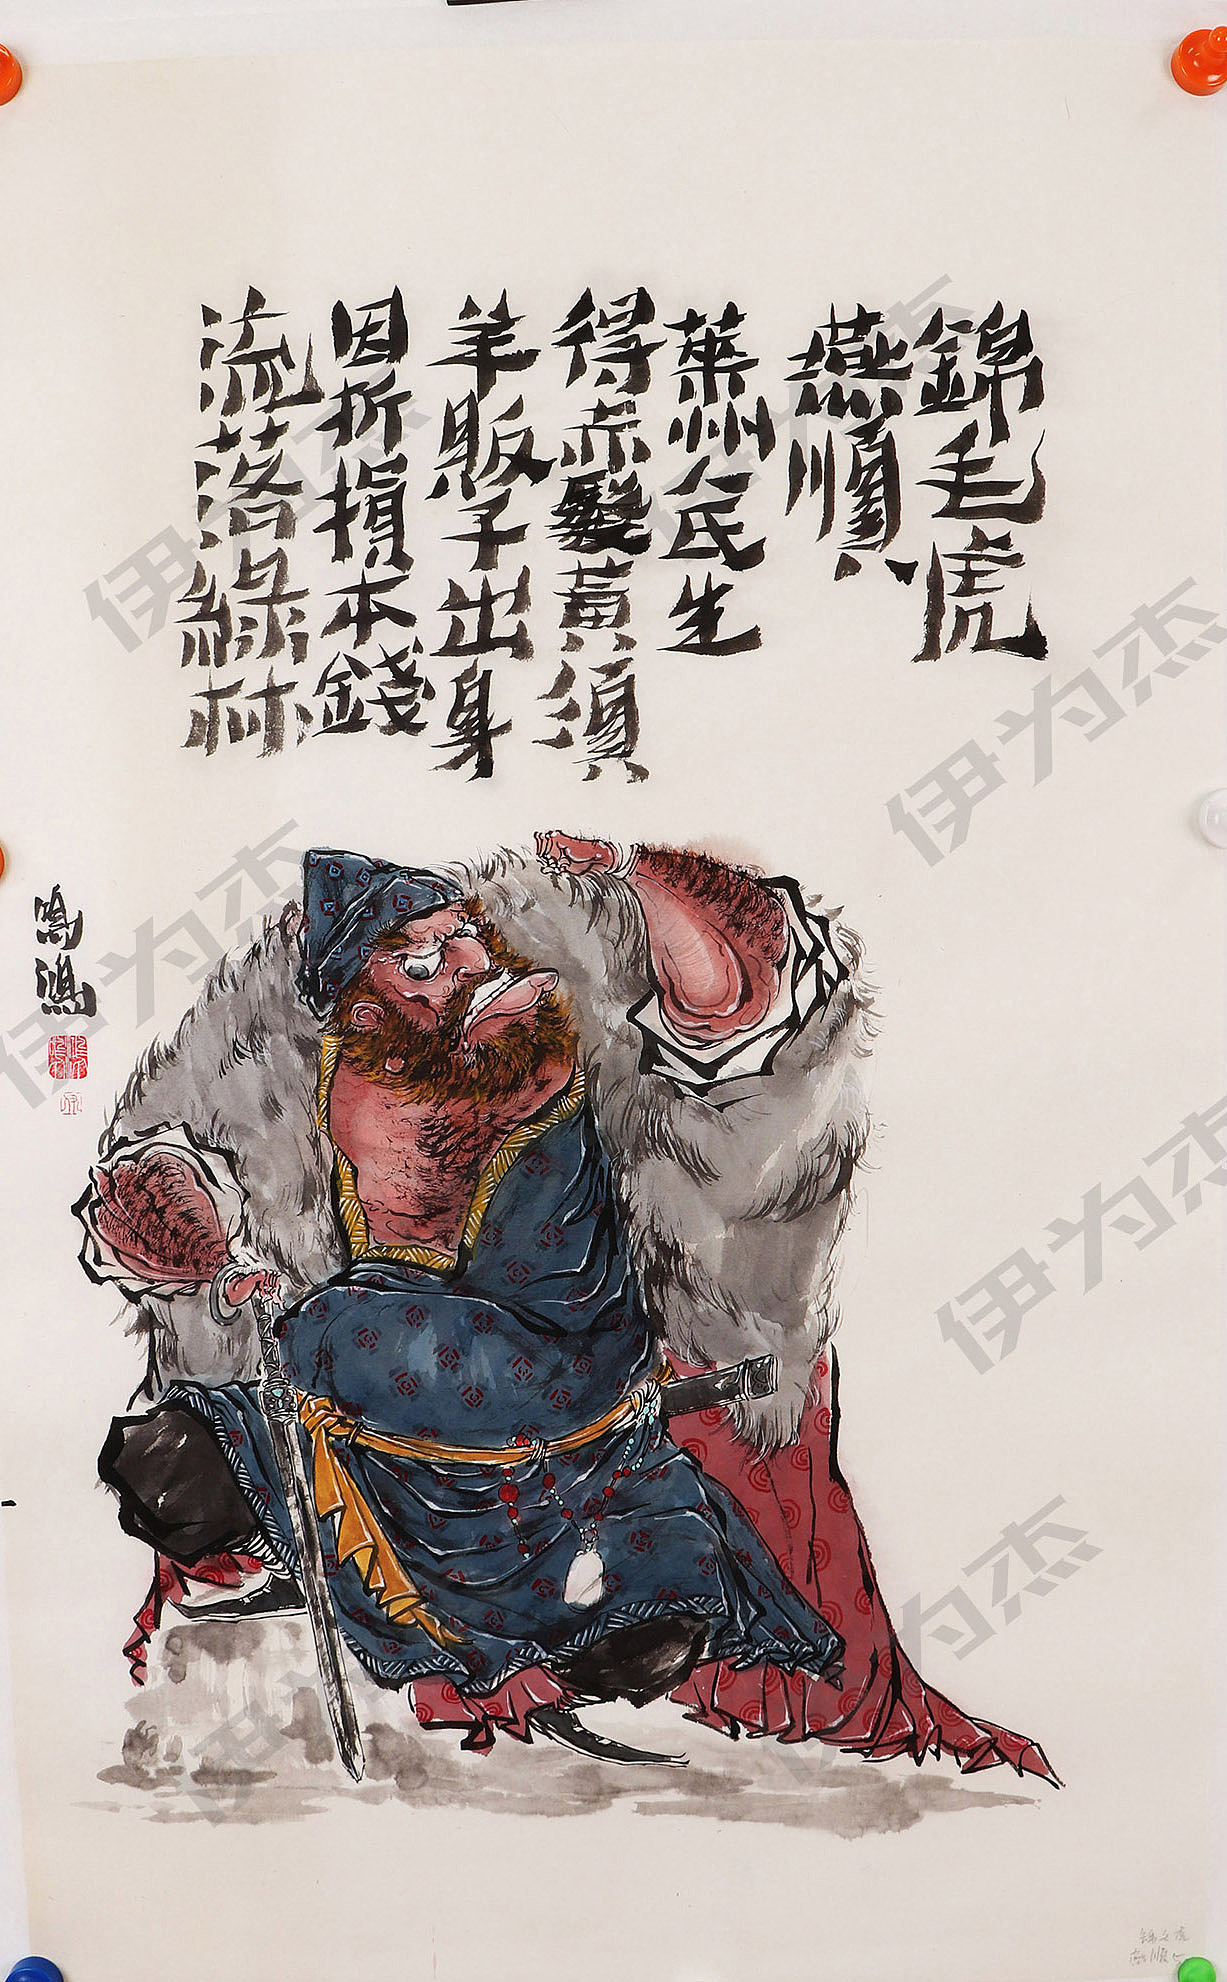 錦毛虎
燕順
萊州民生
得赤髮黃須
羊販子出身
因折損本錢
流落綠林
鳴鴻
伊为杰
伊为杰
伊为杰
伊为杰
伊为杰
伊为杰
伊为杰
伊为杰